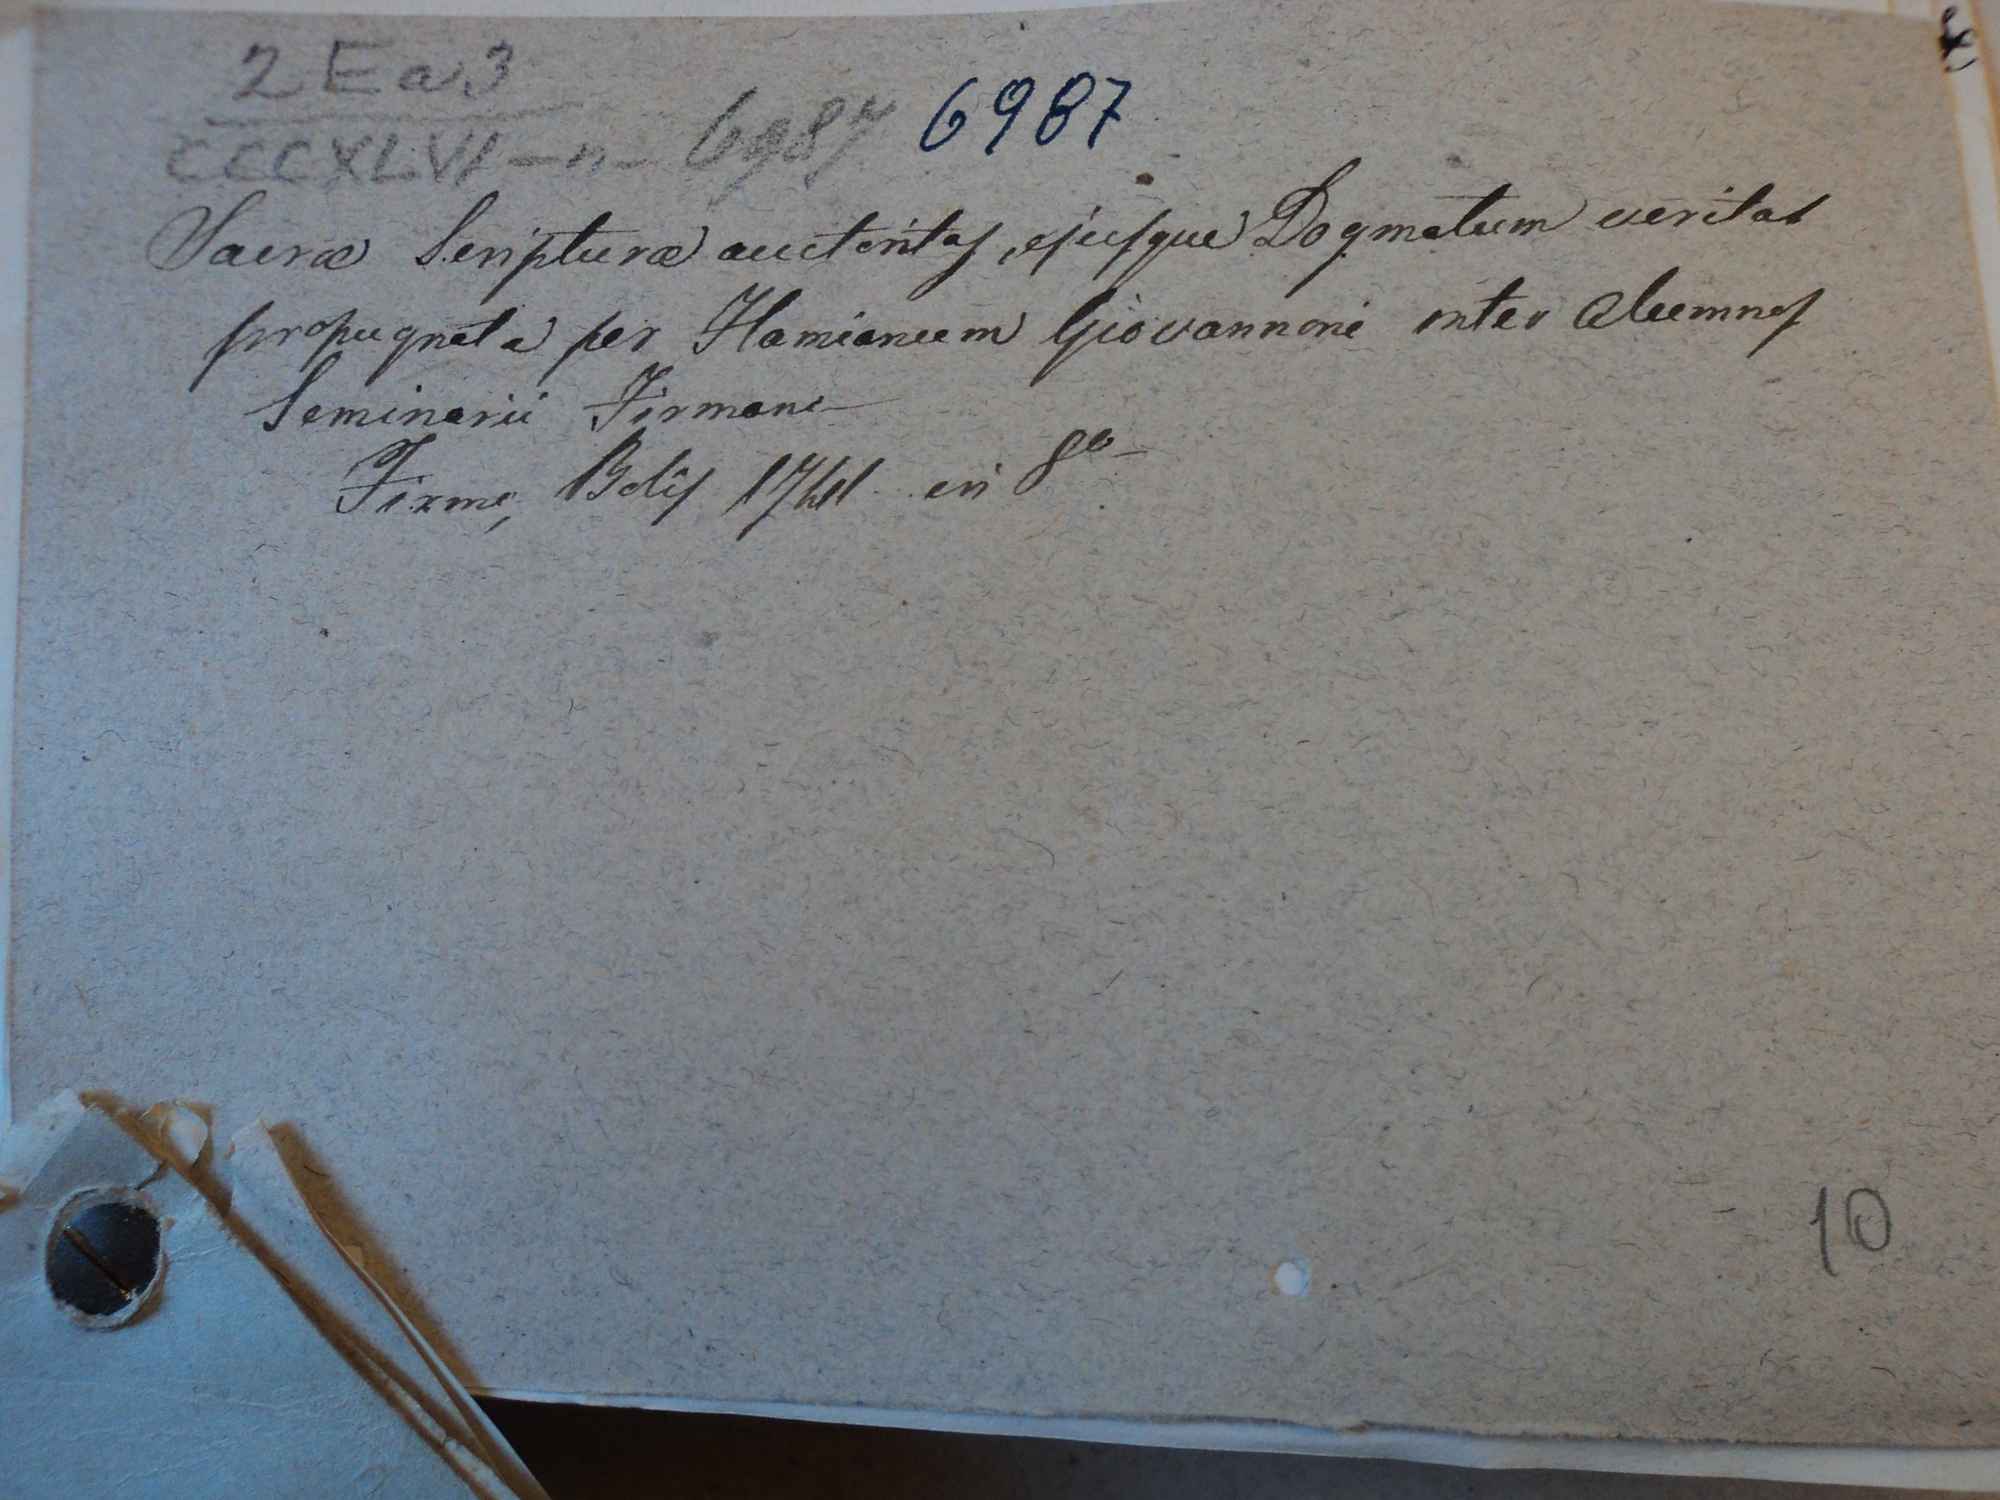 2 E a 3
CCCXLVI - n - 6987 6987
Sacræ Scripturæ auctoritas, ejusque Dogmatum veritas
propugnata per Flamianum Giovannoni inter Alumnos
Seminarii Firmani
Firmi, Bolis 17 in 8º
10